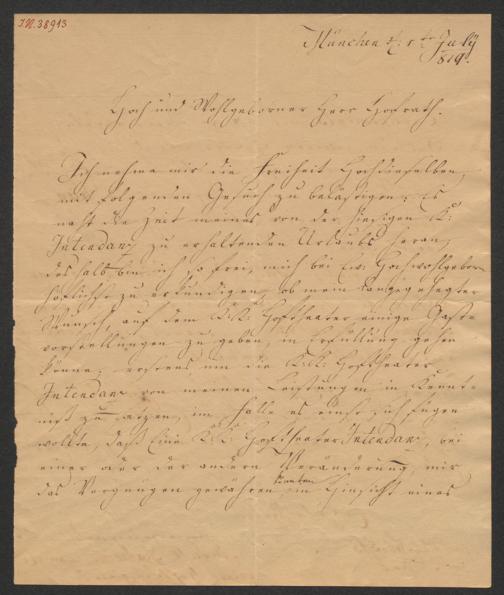 I.N. 38913
München d: 1te July
819.
Hoch und Wohlgeborner Herr Hofrath.
Ich nehme mir die Freiheit Hochdieselben
mit folgenden Gesuch zu belästigen; Es
naht die Zeit meines von der hiesigen K:
Intendanz zu erhaltenden Urlaubs heran,
deshalb bin ich so frei, mich bei Ew: Hochwohlgeborn
höflichst zu erkundigen, ob mein langgehegter
Wunsch, auf dem K: K: Hoftheater einige Gast-
vorstellungen zu geben, in Erfüllung gehen
könne; erstens um die K: K: Hoftheater
Intendanz von meinen Leistungen in Kennt-
niß zu setzen, im Falle es einst sich fügen
wollte, daß Eine K: K: Hoftheater Intendanz, bei
einer oder der andern Veränderung, mir
das Vergnügen gewähren könnten in Hinsicht eines